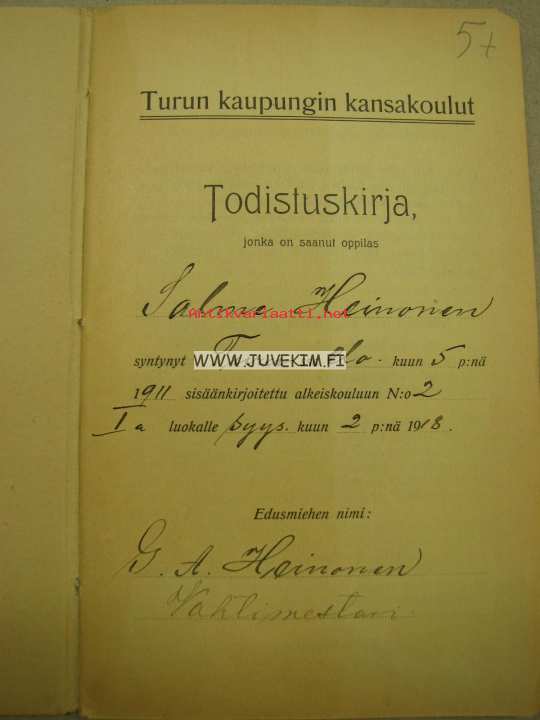 5+
Turun kaupungin kansakoulut
Todistuskirja,
jonka on saanut oppilas
Salme Heinonen
Antikvariaatti.net
syntynyt Elo. kuun 5 p:nä
WWW.JUVEKIM.FI
1911 sisäänkirjoitettu alkeiskouluun N:o 2
I a luokalle syys. kuun 2 p:nä 1918.
Edusmiehen nimi:
G. A. Heinonen
Vahtimestari